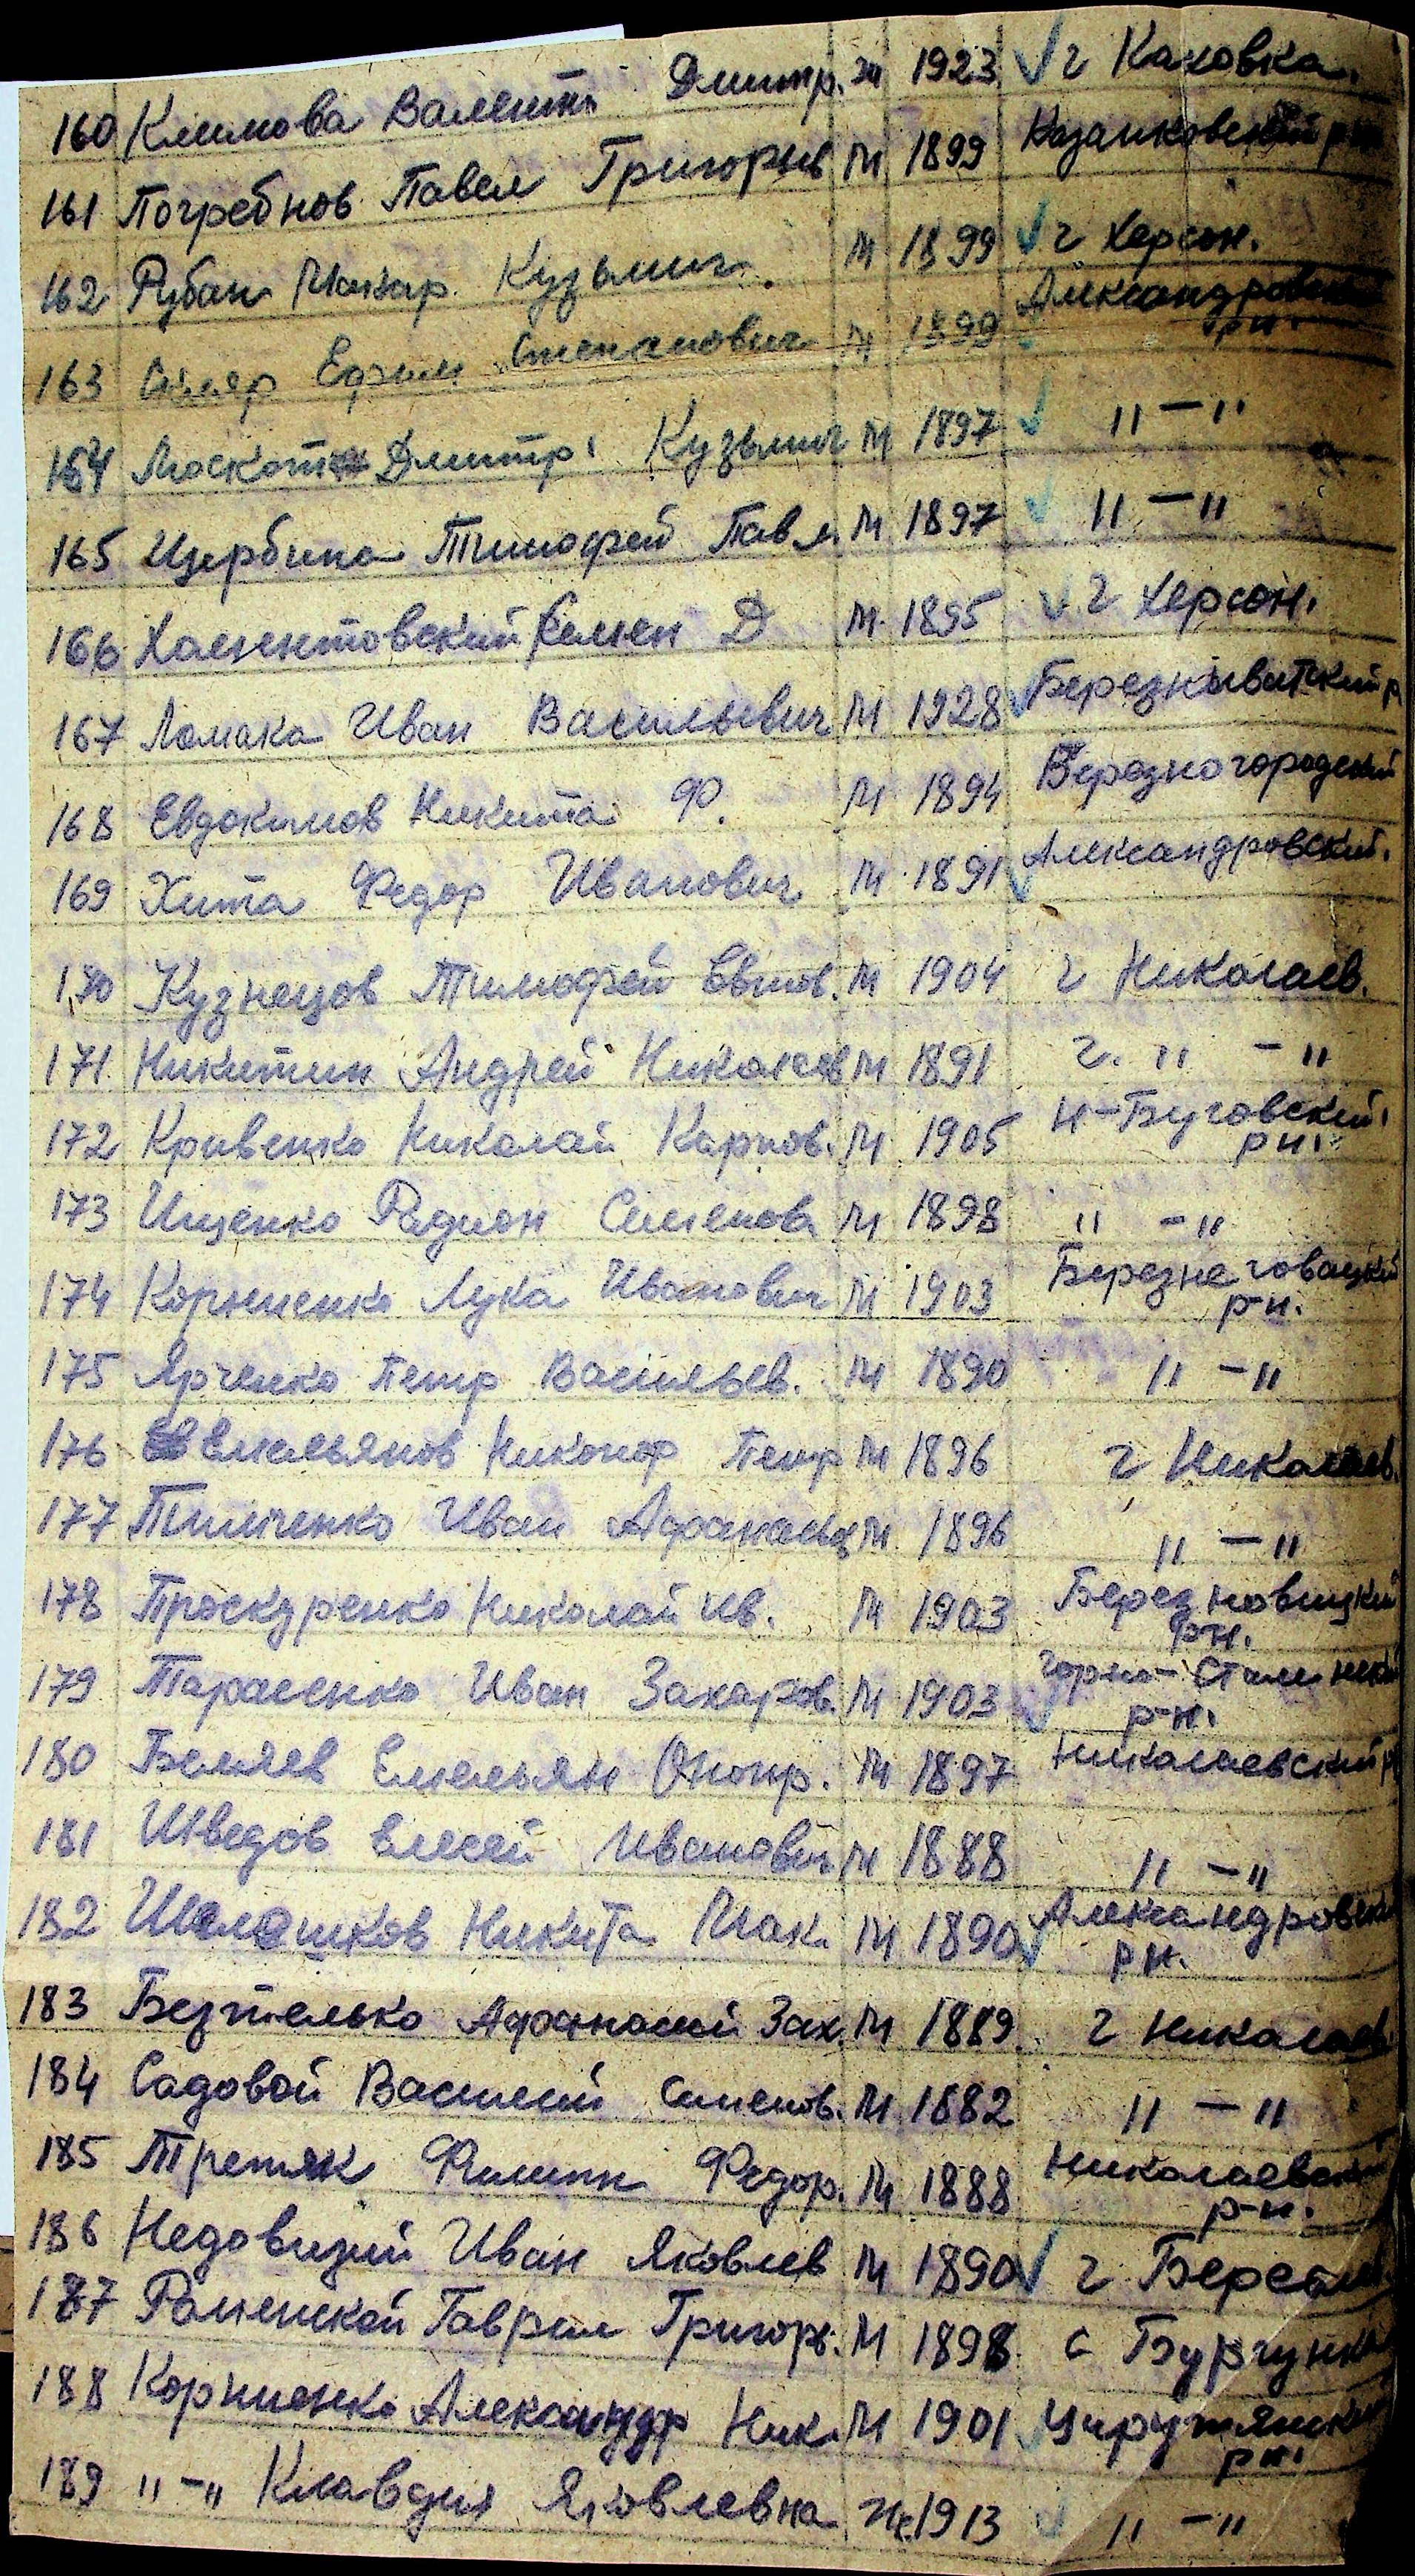 160 Климова Валент. Дмитр. ж 1923 г Каховка.
161 Погребнов Павел Григорьев М 1899 Казанковский рн
162 Рубан Макар. Кузьмич. М 1899 г Херсон.
163 Ефим Степанович М 1899 Александровский
рн.
164 Дмитр. Кузьмич М 1897 " — "
165 Щербина Тимофей Павл. М 1897 " — "
166 Хаментовский Семен Д М. 1895 г Херсон.
167 Ломака Иван Васильевич М 1928 Березниватский р
168 Евдокимов Никита Ф. М 1894 Березногородский
169 Хита Федор Иванович М 1891 Александровский.
170 Кузнецов Тимофей М 1904 г Николаев.
171. Никитин Андрей Николаев М 1891 г. " — "
172 Кривенко Николай Карпов. М 1905 Н-Буговский.
рн.
173 Ищенко Радион Семенов М 1898 " — "
174 Корниенко Лука Иванович М 1903 Березнеговацкий
р-н.
175 Ярченко Петр Васильев. М 1890 " — "
176 Емельянов Никонор Петр М 1896 г Николаев.
177 Тимченко Иван М 1896 " — "
178 Проскуренко Николай Ив. М 1903 Березновицкий
рн.
179 Тарасенко Иван Захаров. М 1903 Горно-Сталинский
р-н.
180 Беляев Емельян Онопр. М 1897 Николаевский р
181 Шведов Елесей Иванович М 1888 " — "
182 Шелешков Никита Мак. М 1890 Александровск
рн.
183 Безтелько Афанасий Зах. М 1889. г Николаев.
184 Садовой Василий Семенов. М. 1882 " — "
185 Третяк Филипп Федор. М 1888 Николаевский
р-н.
186 Недовизий Иван Яковлев М 1890 г Берислав
187 Раменской Гаврил Григорь. М 1898 с Бургунка
188 Корниенко Александр Ник. М 1901
рн.
189 " — " Клавдия Яковлевна Ж. 1913 " — "